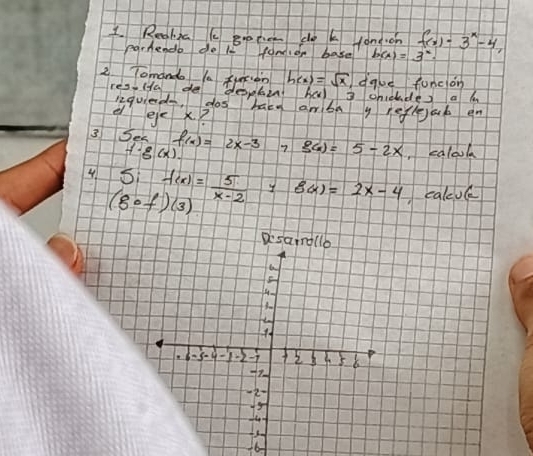 1. Realiza la grafica de la función f(x) = 3^x - 4,
partiendo de la función base b(x) = 3^x.
2. Tomando la función h(x) = √x, ¿que función
resulta de desplazar h(x) 3 unidades a la
izquierda, dos hacia arriba y reflejarla en
el eje x?
3 Sea f(x) = 2x-3 y g(x) = 5 - 2x, calcula
f·g(x).
4 Si f(x) = 5/(x-2) y g(x) = 2x - 4, calcule
(g∘f)(3)
Desarrollo